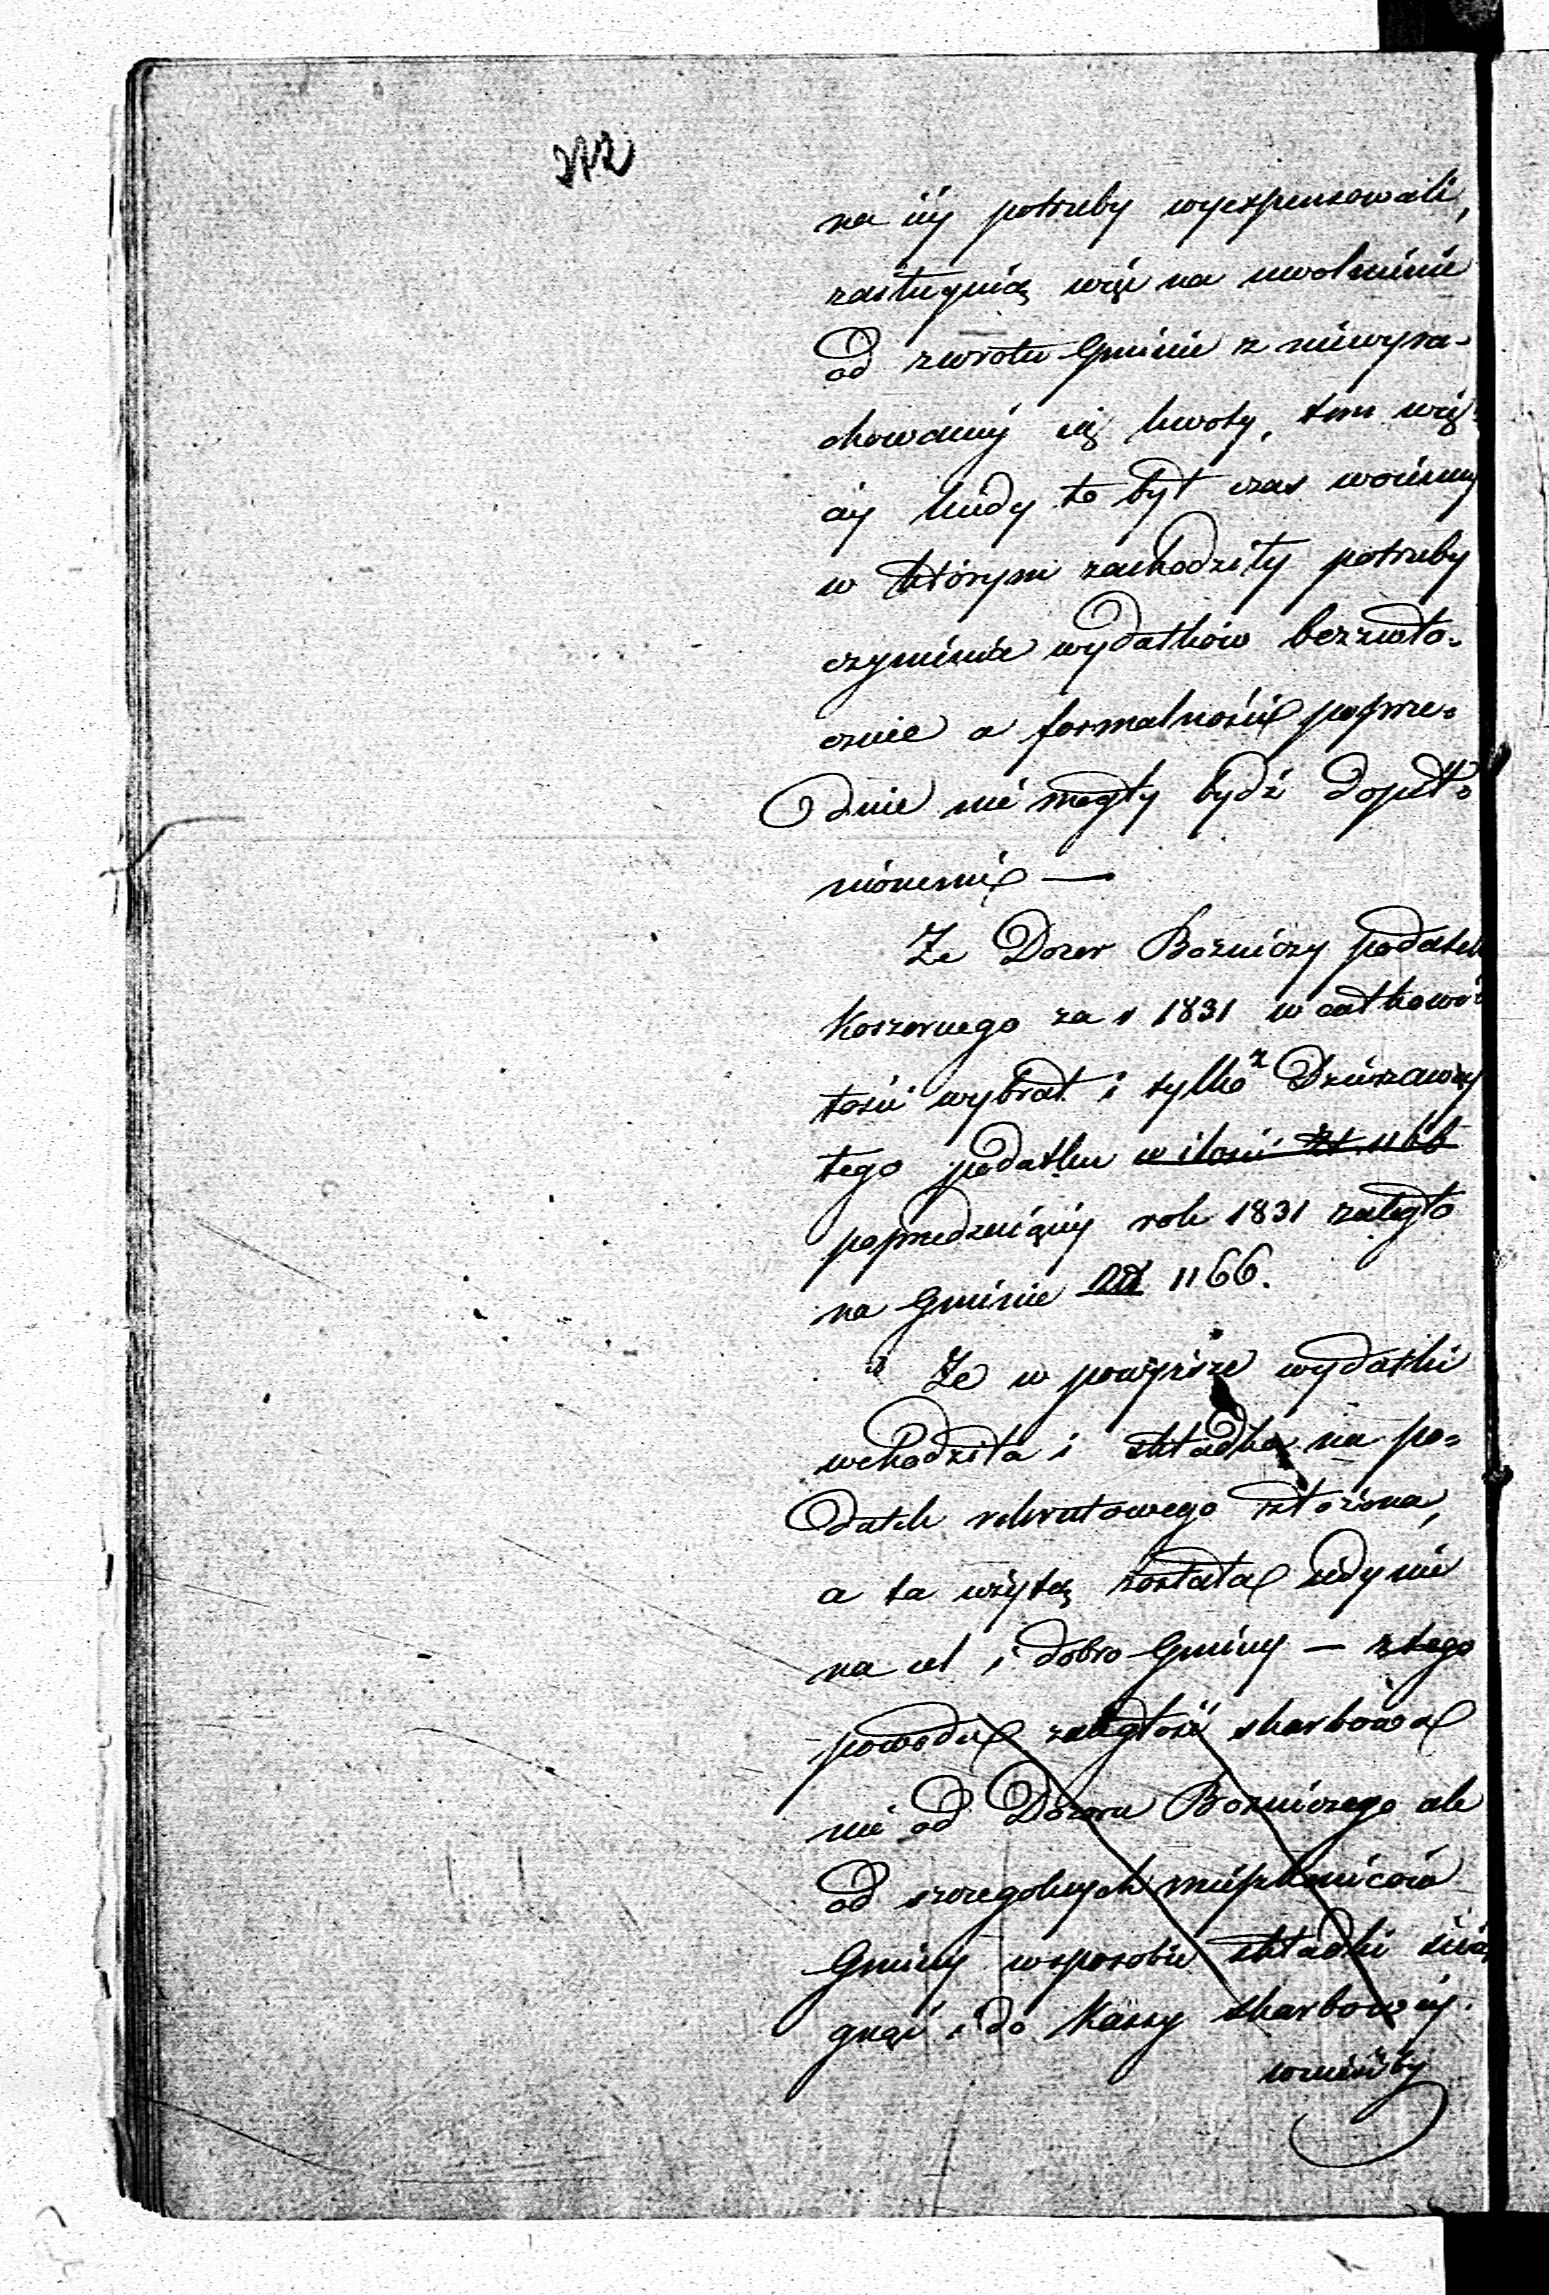 272
na iéy potrzeby wyexpensowali,
zasługuią więc na uwolnienie
od zwrotu Gminie z niewyra-
chowanéy się kwoty, tem wię-
céy kiedy to był czas woienny
w którym zachodziły potrzeby
czynienia wydatków bezzwło-
cznie a formalności poprze-
dnie nie mogły bydź dopeł-
nionemi —
Ze Dozor Bozniczy podatek
Koszernego za r 1831 w całkowi-
tości wybrał i tylko z Dzierzawy
tego podatku w ilości Zł. 1166
poprzedzaiącéy rok 1831 zaległo
na Gminie 1166.
Ze w powyższe wydatki
wchodziła i składka na po-
datek rekrutowego złożona,
a ta użytą została iedynie
na cel i dobro Gminy — z tego
powodu zaległość skarbowa
nie od Dozoru Bozniczego ale
od szczegolnych mieszkańców
Gminy w sposobie składki ścią
gnąć i do Kassy skarbowéy
wnieśćby